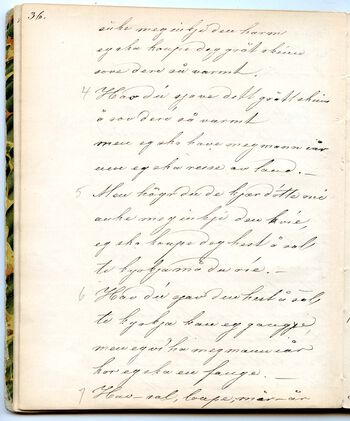 36.
auke meg inkje den harm
eg ska kaupe deg grått skinn
sove dere så varmt.
4 Hav du sjøve dett grått skinn
å sov dere så varmt
men eg ska have meg mann i år
um eg ska reise av land. —
5 Men høyr du de kjærdotte mi
auke meg inkji den kvie,
eg ska kaupe deg hest å sal,
te kyrkja må du rie. —
6 Hav du sjøv den hest å sal,
te kyrkja kan eg gange,
men eg vi ha meg mann i år
hor eg ska en fange. —
7 Hav sal, kaupe,